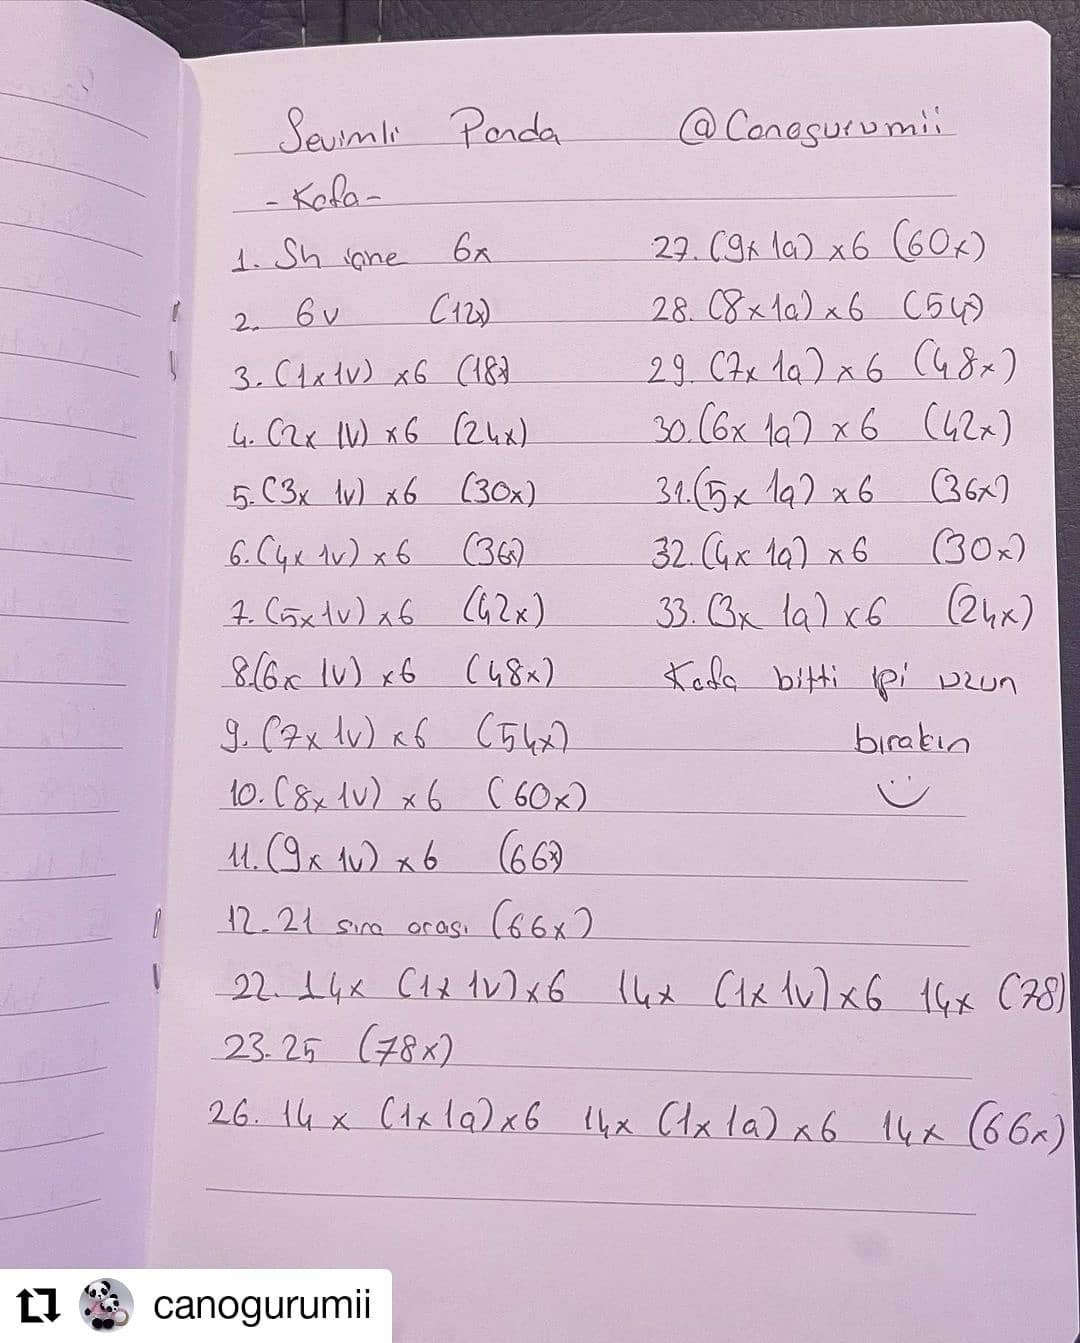 Sevimli Panda @Canogurumii
- Kafa -
1. Sh içine 6x
2. 6v (12x)
3. (1x1v) x6 (18x)
4. (2x 1v) x6 (24x)
5. (3x 1v) x6 (30x)
6. (4x 1v) x6 (36x)
7. (5x 1v) x6 (42x)
8. (6x 1v) x6 (48x)
9. (7x 1v) x6 (54x)
10. (8x 1v) x6 (60x)
11. (9x 1v) x6 (66x)
12-21 sıra arası (66x)
22. 14x (1x 1v) x6 14x (1x 1v) x6 14x (78)
23-25 (78x)
26. 14x (1x 1a) x6 14x (1x 1a) x6 14x (66x)
27. (9x 1a) x6 (60x)
28. (8x 1a) x6 (54x)
29. (7x 1a) x6 (48x)
30. (6x 1a) x6 (42x)
31. (5x 1a) x6 (36x)
32. (4x 1a) x6 (30x)
33. (3x 1a) x6 (24x)
Kafa bitti ipi uzun
bırakın
canogurumii